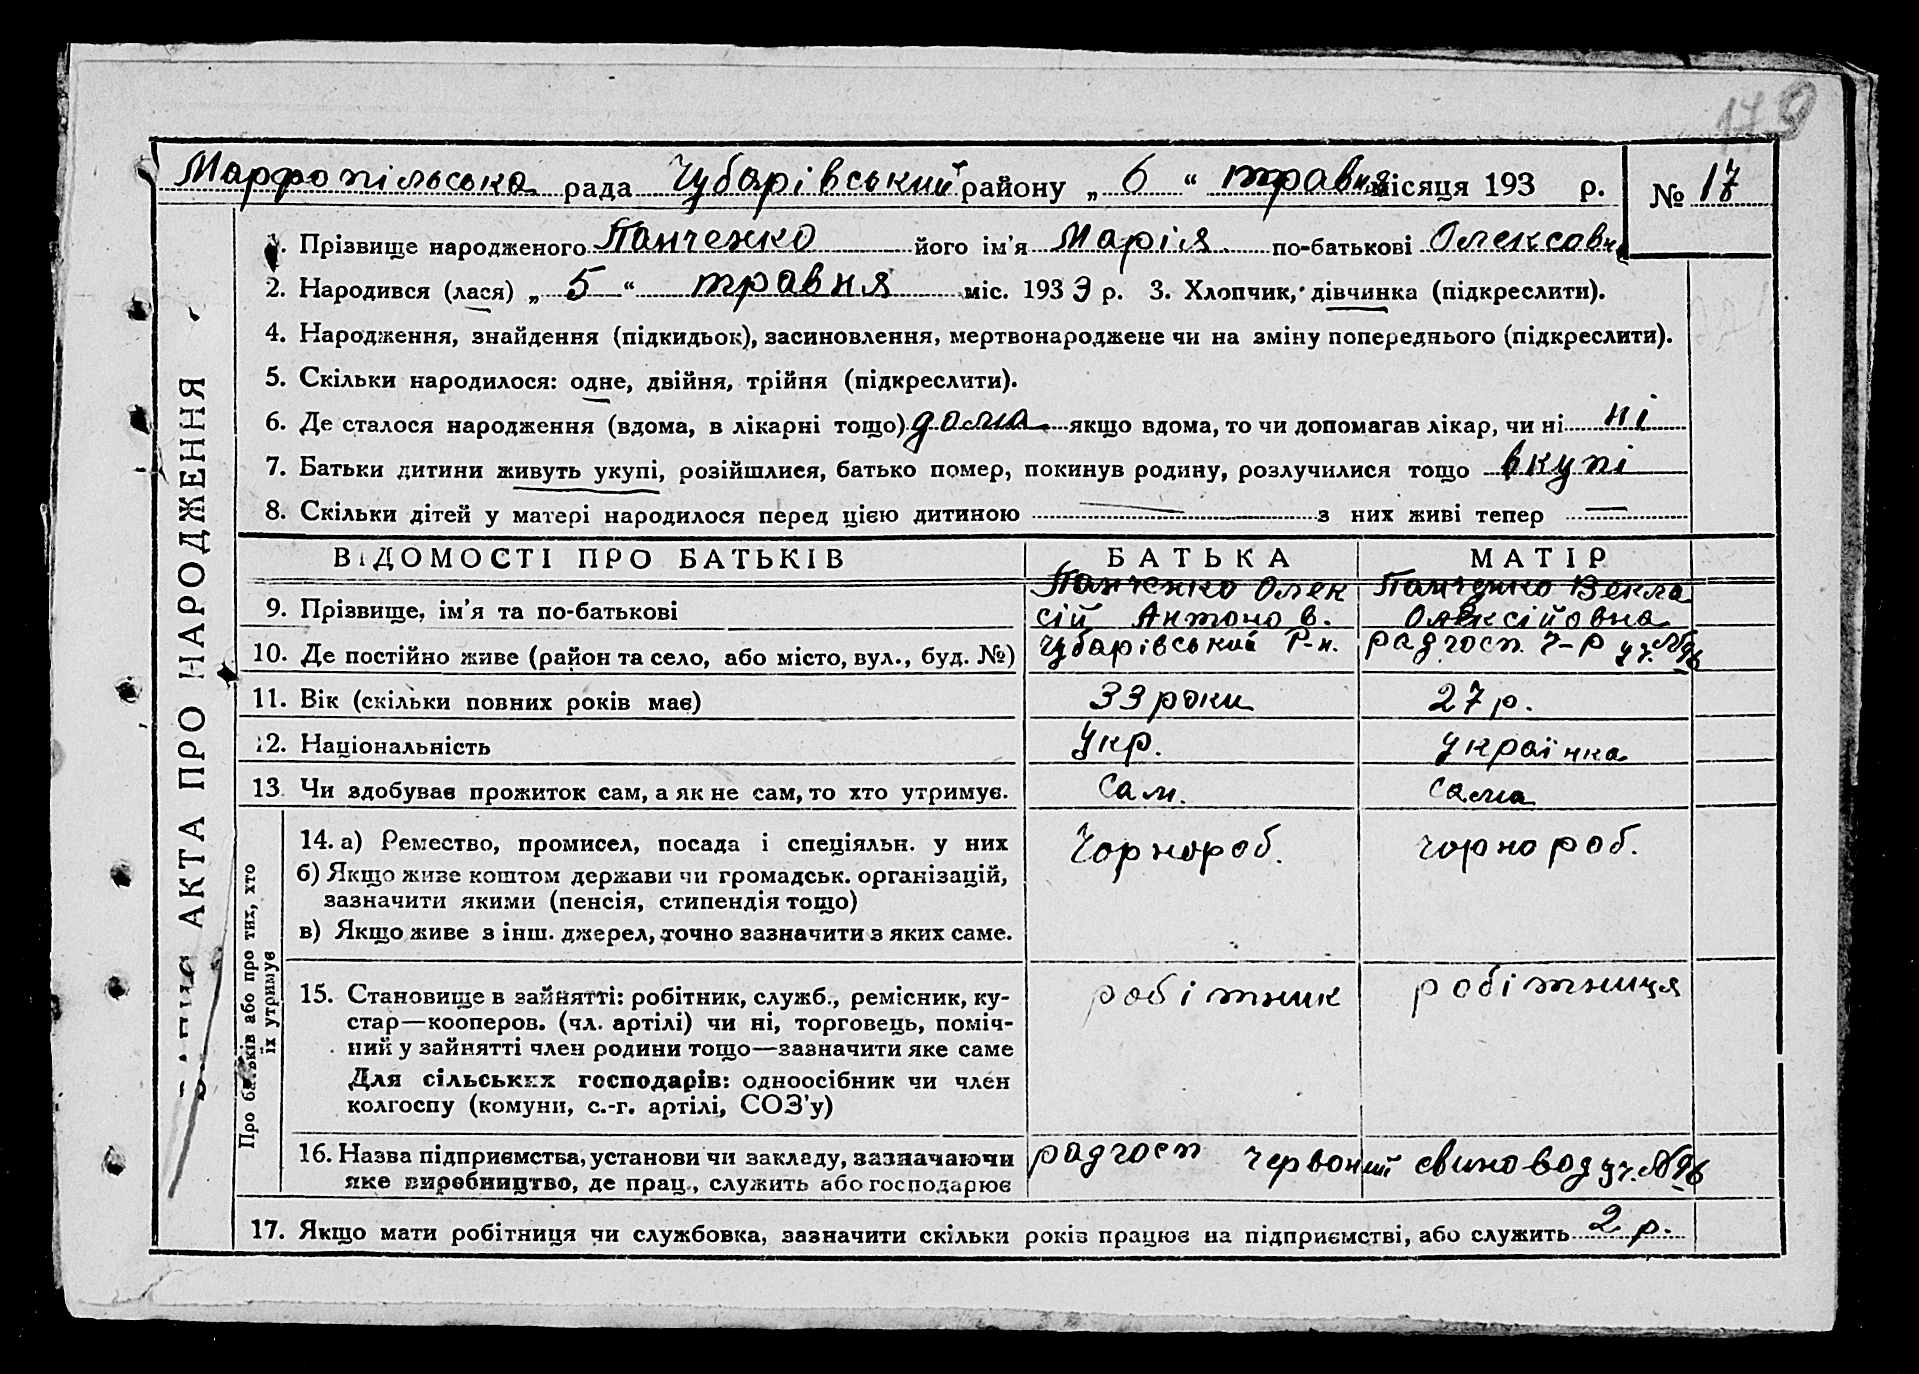 179
Марфопільська рада Чубарівський району „ 6 “ травня місяця 193 р. № 17
1. Прізвище народженого Панченко його ім’я Марія по-батькові Олексовн
2. Народився (лася) „ 5 “ травня міс. 1933 р. 3. Хлопчик, дівчинка (підкреслити).
4. Народження, знайдення (підкидьок), засиновлення, мертвонароджене чи на зміну попереднього (підкреслити).
5. Скільки народилося: одне, двійня, трійня (підкреслити).
6. Де сталося народження (вдома, в лікарні тощо) дома якщо вдома, то чи допомагав лікар, чи ні ні
7. Батьки дитини живуть укупі, розійшлися, батько помер, покинув родину, розлучилися тощо вкупі
8. Скільки дітей у матері народилося перед цією дитиною — з них живі тепер —
ВІДОМОСТІ ПРО БАТЬКІВ БАТЬКА МАТІР
9. Прізвище, ім’я та по-батькові Панченко Олек Панченко Векла
сій Антонов. Олексійовна
10. Де постійно живе (район та село, або місто, вул., буд. №) Чубарівський Р-н. радгосп. Ч-Р уч. №6
11. Вік (скільки повних років має) 33 роки 27 р.
12. Національність Укр. українка
13. Чи здобуває прожиток сам, а як не сам, то хто утримує. Сам. сама
14. а) Ремество, промисел, посада і спеціяльн. у них Чорнороб. чорнороб.
б) Якщо живе коштом держави чи громадськ. організацій,
зазначити якими (пенсія, стипендія тощо)
в) Якщо живе з інш. джерел, точно зазначити з яких саме.
15. Становище в зайнятті: робітник, служб., ремісник, ку- робітник робітниця
стар—кооперов. (чл. артілі) чи ні, торговець, поміч-
ний у зайнятті член родини тощо—зазначити яке саме
Для сільських господарів: одноосібник чи член
колгоспу (комуни, с.-г. артілі, СОЗ’у)
16. Назва підприємства, установи чи закладу, зазначаючи радгосп червоний свиновод уч. №6
яке виробництво, де прац., служить або господарює
17. Якщо мати робітниця чи службовка, зазначити скільки років працює на підприємстві, або служить 2 р.
АКТА ПРО НАРОДЖЕННЯ
Про батьків або про тих, хто
їх утримує